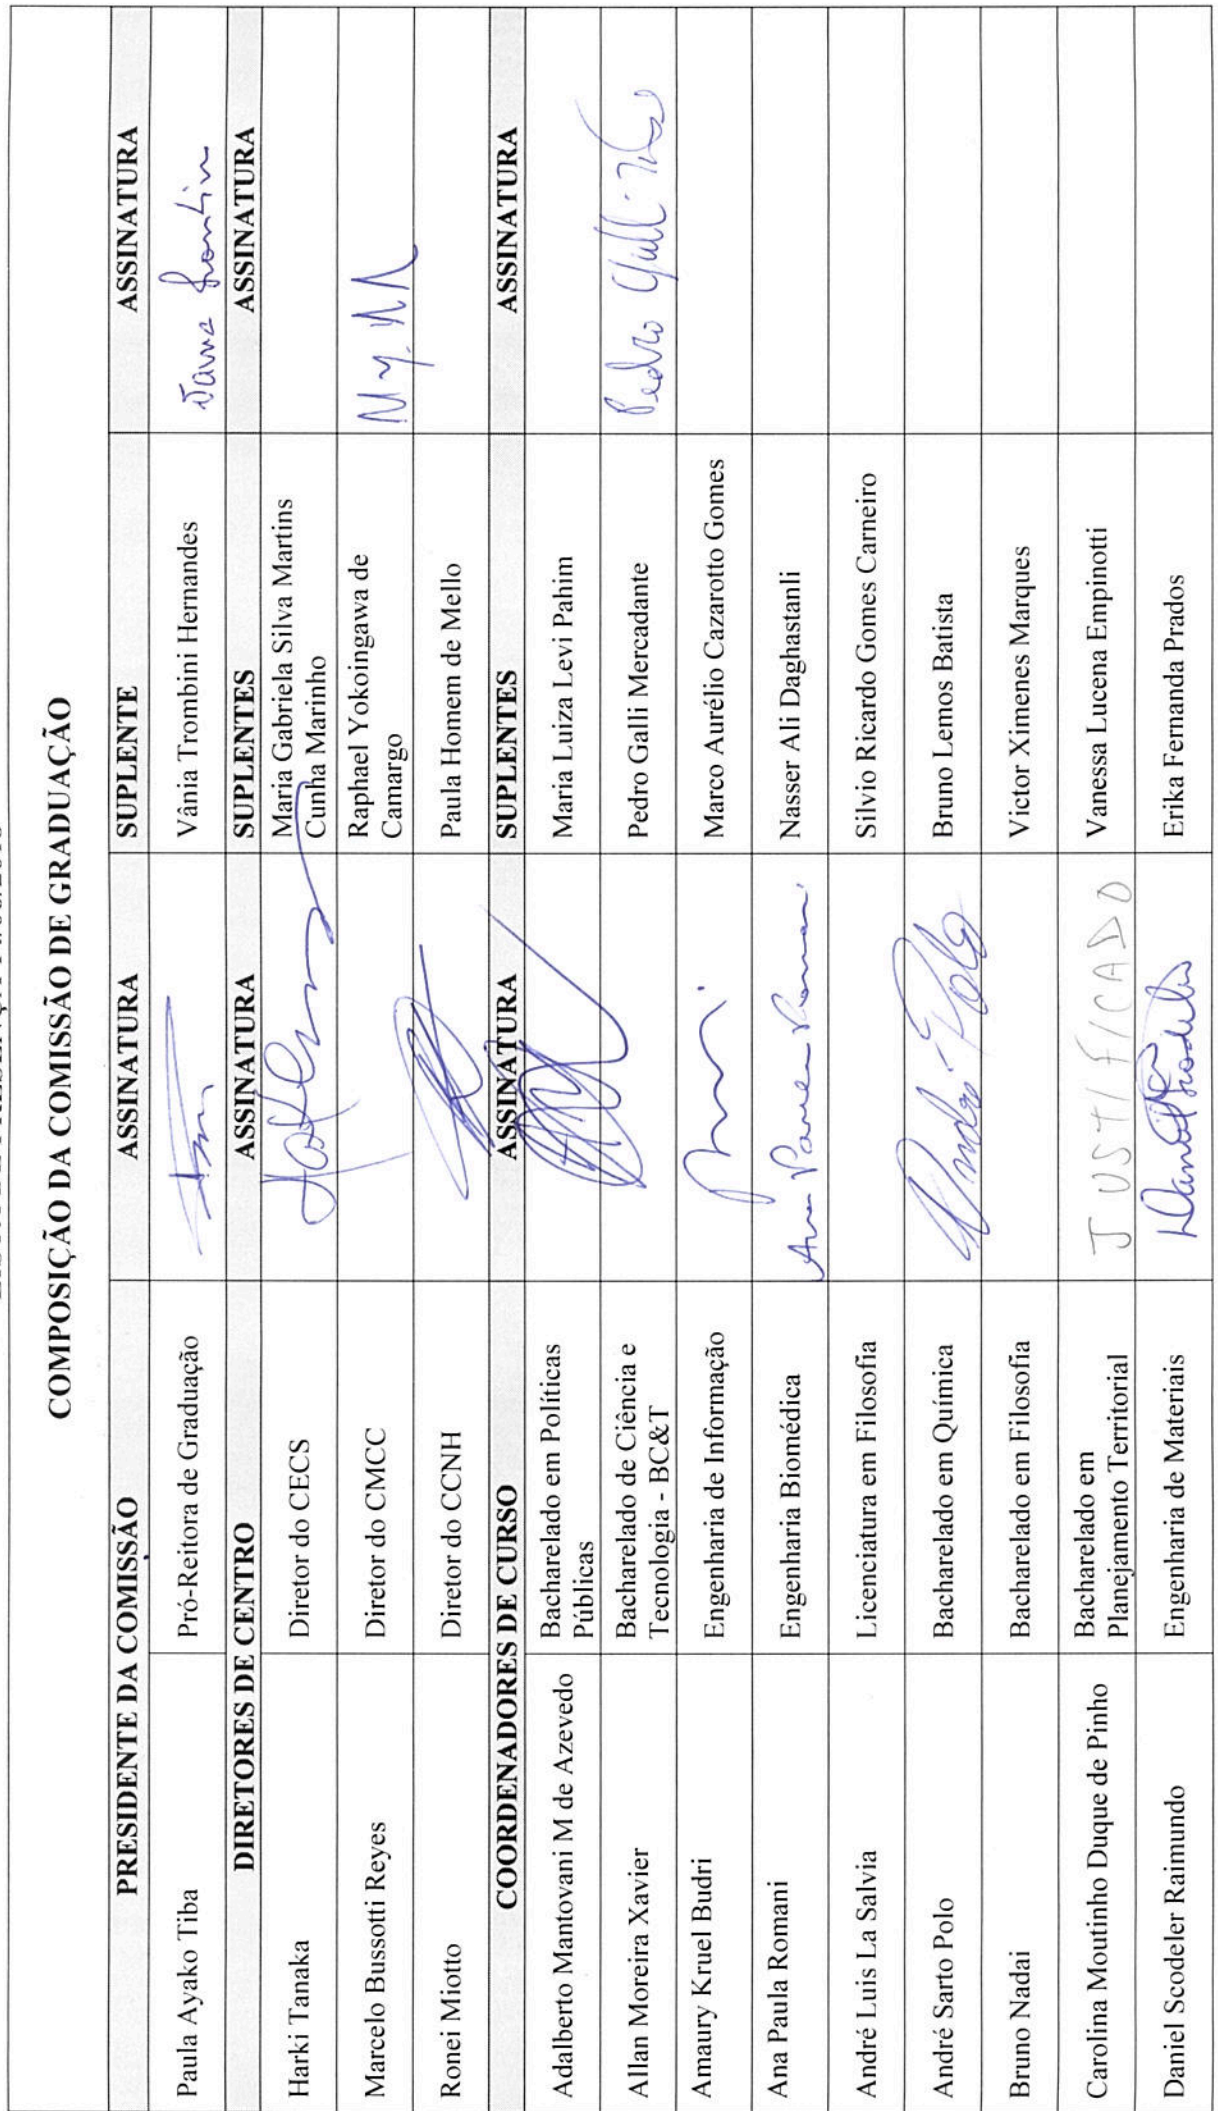 COMPOSIÇÃO DA COMISSÃO DE GRADUAÇÃO
PRESIDENTE DA COMISSÃO ASSINATURA SUPLENTE ASSINATURA
Paula Ayako Tiba Pró-Reitora de Graduação Vânia Trombini Hernandes
DIRETORES DE CENTRO ASSINATURA SUPLENTES ASSINATURA
Harki Tanaka Diretor do CECS Maria Gabriela Silva Martins
Cunha Marinho
Marcelo Bussotti Reyes Diretor do CMCC Raphael Yokoingawa de
Camargo
Ronei Miotto Diretor do CCNH Paula Homem de Mello
COORDENADORES DE CURSO ASSINATURA SUPLENTES ASSINATURA
Adalberto Mantovani M de Azevedo Bacharelado em Políticas
Públicas Maria Luiza Levi Pahim
Allan Moreira Xavier Bacharelado de Ciência e
Tecnologia - BC&T Pedro Galli Mercadante Pedro Galli
Amaury Kruel Budri Engenharia de Informação Marco Aurélio Cazarotto Gomes
Ana Paula Romani Engenharia Biomédica Ana Paula Romani Nasser Ali Daghastanli
André Luis La Salvia Licenciatura em Filosofia Silvio Ricardo Gomes Carneiro
André Sarto Polo Bacharelado em Química André Polo Bruno Lemos Batista
Bruno Nadai Bacharelado em Filosofia Victor Ximenes Marques
Carolina Moutinho Duque de Pinho Bacharelado em
Planejamento Territorial JUSTIFICADO Vanessa Lucena Empinotti
Daniel Scodeler Raimundo Engenharia de Materiais Erika Fernanda Prados